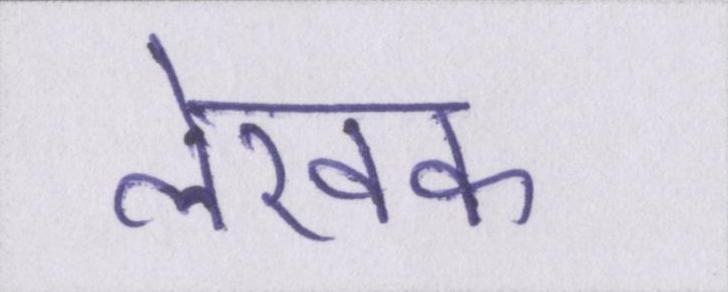 लेखक